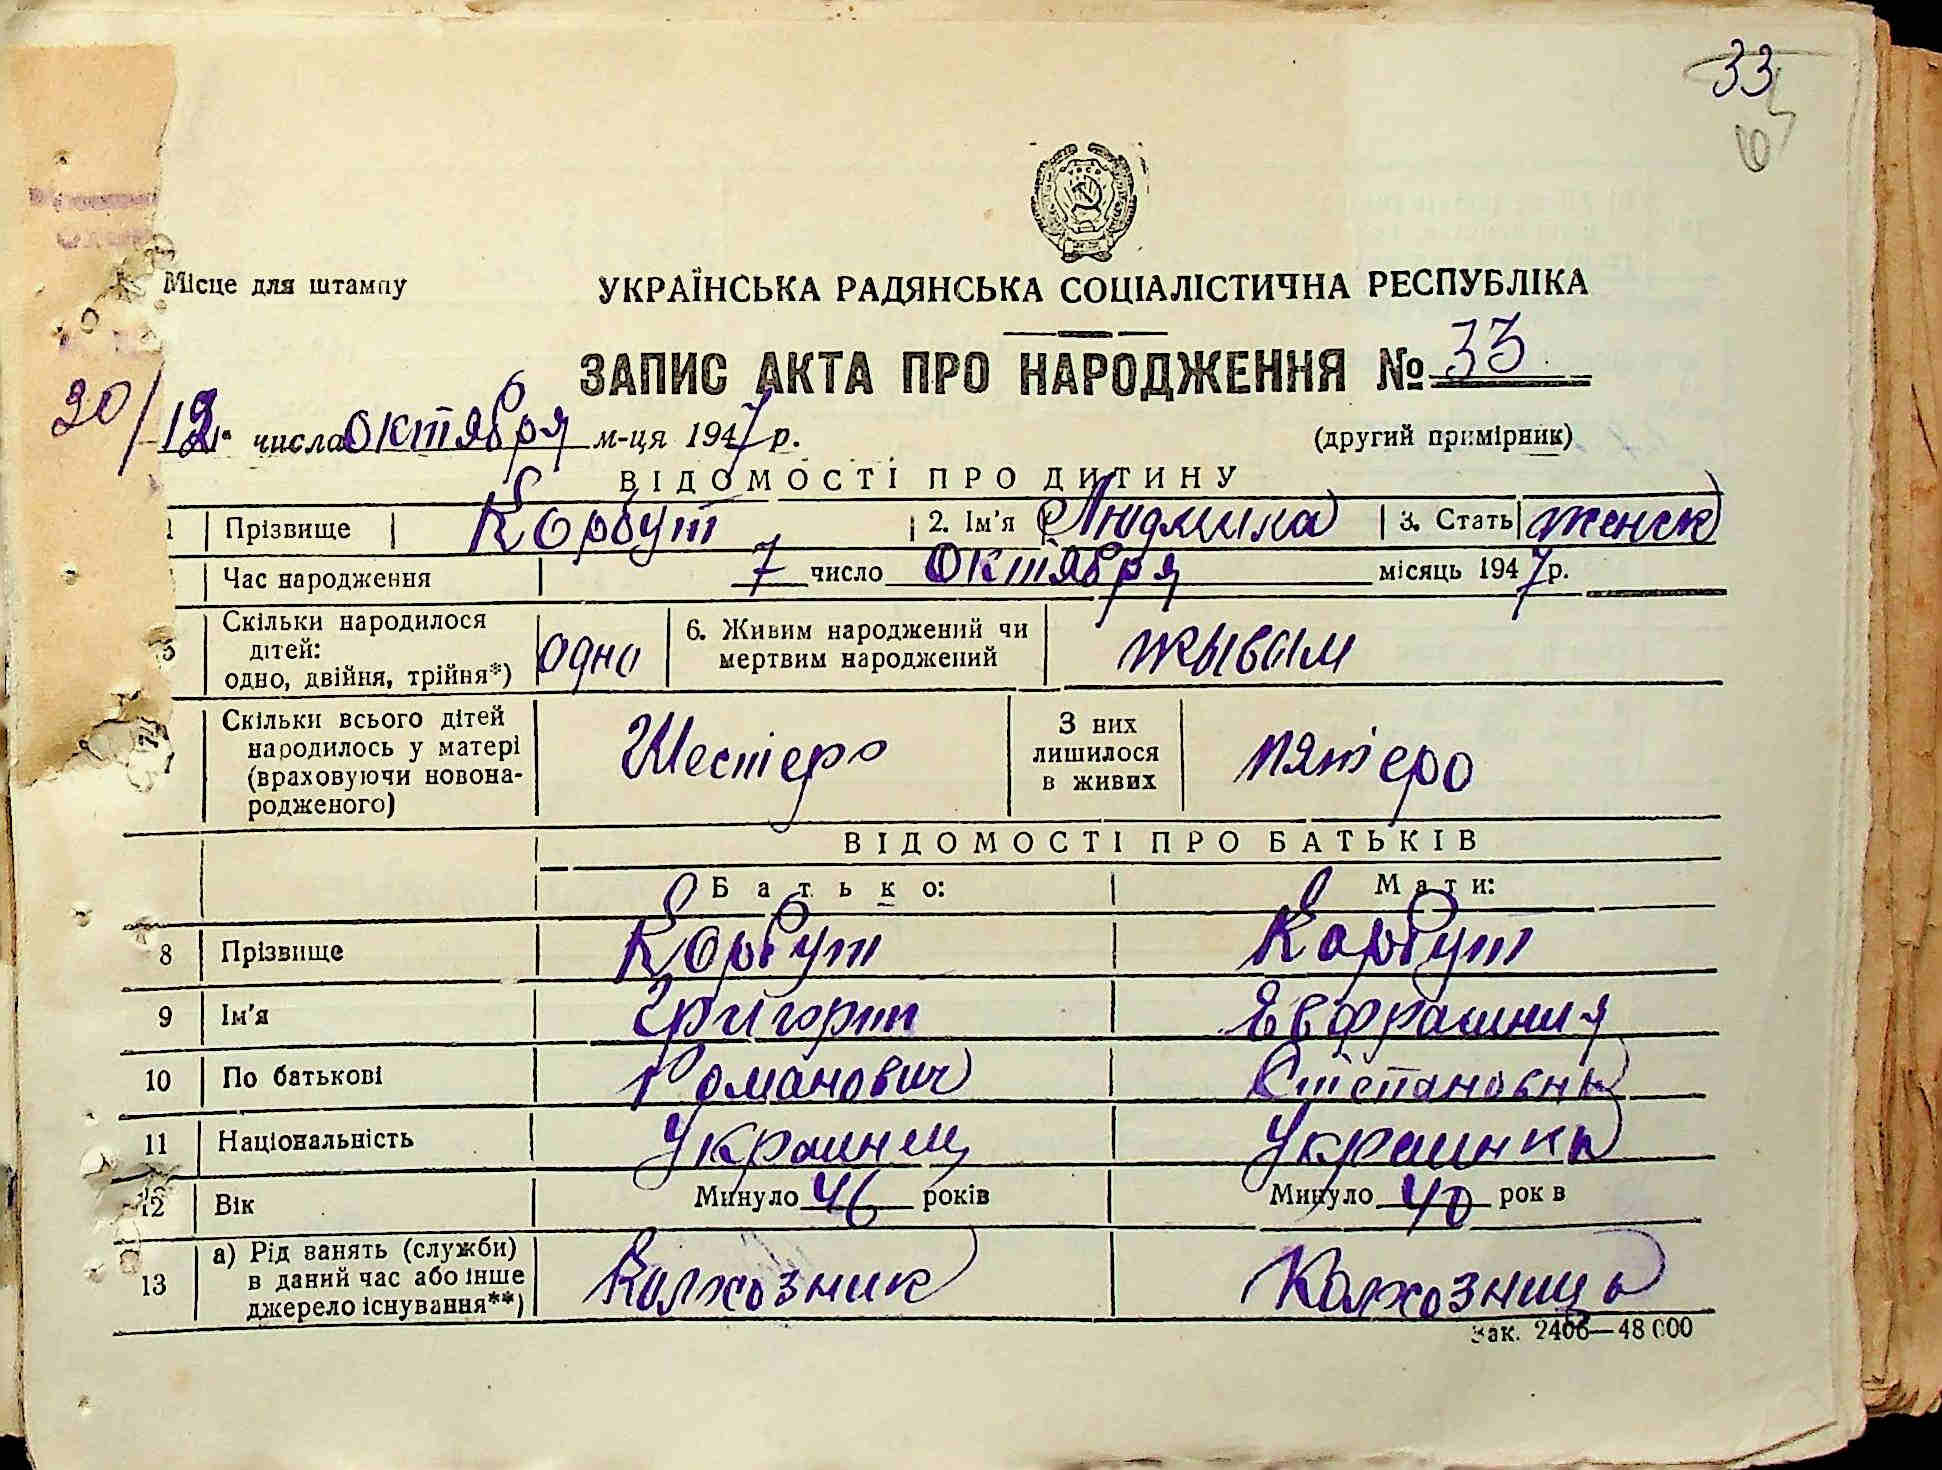 33
Місце для штампу
УКРАЇНСЬКА РАДЯНСЬКА СОЦІАЛІСТИЧНА РЕСПУБЛІКА
ЗАПИС АКТА ПРО НАРОДЖЕННЯ № 33
30/12 числа октября м-ця 1947 р. (другий примірник)
ВІДОМОСТІ ПРО ДИТИНУ
1 Прізвище Корбут 2. Ім'я Людмила 3. Стать женск
Час народження 7 число октября місяць 1947 р.
Скільки народилося
дітей:
одно, двійня, трійня*)
одно
6. Живим народжений чи
мертвим народжений
жывым
Скільки всього дітей
народилось у матері
(враховуючи новона-
родженого)
Шестеро
З них
лишилося
в живих
пятеро
ВІДОМОСТІ ПРО БАТЬКІВ
Батько: Мати:
8 Прізвище Корбут Карбут
9 Ім'я Григорий Евфрашния
10 По батькові Романович Степановна
11 Національність Украинец Украинка
12 Вік Минуло 46 років Минуло 40 рок в
13 а) Рід занять (служби)
в даний час або інше
джерело існування**)
Колхозник Колхозница
Зак. 2406—48 000